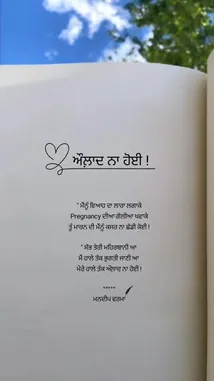 ਔਲ਼ਾਦ ਨਾ ਹੋਈ !
" ਮੈਨੂੰ ਵਿਆਹ ਦਾ ਲਾਰਾ ਲਗਾਕੇ
Pregnancy ਦੀਆ ਗੋਲੀਆ ਖਵਾਕੇ
ਤੂੰ ਮਾਰਨ ਦੀ ਮੈਨੂੰ ਕਸਰ ਨਾ ਛੱਡੀ ਕੋਈ !
" ਸੱਭ ਤੇਰੀ ਮਹਿਰਬਾਨੀ ਆ
ਮੈਂ ਹਾਲੇ ਤੱਕ ਭੁਗਤੀ ਜਾਨੀ ਆ
ਮੇਰੇ ਹਾਲੇ ਤੱਕ ਔਲ਼ਾਦ ਨਾ ਹੋਈ !
*****
ਮਨਦੀਪ ਵਰਮਾ